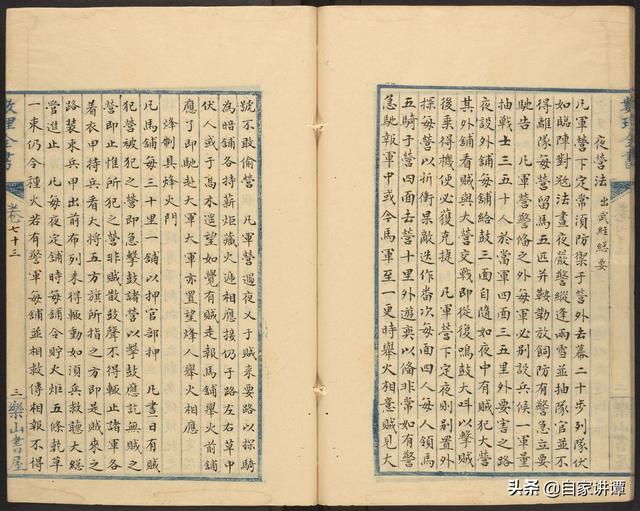 夜營法 出武經總要
凡軍營下定常須防禦于營外去幕二十步列隊伏
如臨陣對寇法晝夜嚴警縱逢雨雪並抽隊官並不
得離隊每營留馬五匹并鞍勒放飼防有警急立要
馳告 凡軍營警備之外每軍必別設兵候一軍量
抽戰士三五十人於當軍四面三五里外要害之路
夜設外舖每舖給鼓三面自隨如夜中有賊犯大營
其外舖看賊與大營交戰即從後鳴鼓大呌以擊賊
後乘得機便必獲克捷 凡軍營下定夜則別置外
營以折衡果敵迭作番次每面四人每人領馬
五騎于營四面去營十里外遊奕以備非常如有警
急馳報軍中或令馬軍至一更時舉火相意賊見大
號不敢偷營 凡軍營過夜又于賊來要路以探騎
為暗舖各持薪炬藏火遞相應接仍于路左右草中
伏人或于高木遥望如覺有賊走報馬舖舉火前舖
應了即馳赴大軍大軍亦置望烽人舉火相應
烽制具烽火門
凡馬舖每三十里一舖以押官部押 凡晝日有賊
犯營被犯之營即急擊鼓諸營以擊鼓應訖無賊之
營即止惟所犯之營非賊散鼓聲不得輒止諸軍各
着衣甲持兵看大將五方旗所指之方即是賊來之
路裝束兵甲出前布列來得輒動如須兵救聽大總
管進止 凡每夜定舖時每舖令貯火炬五條乾草
一束仍令種火若有警軍每舖並相救傳相報不得
數理全書 卷七十三 三 樂山書屋
头条 @自家讲谭